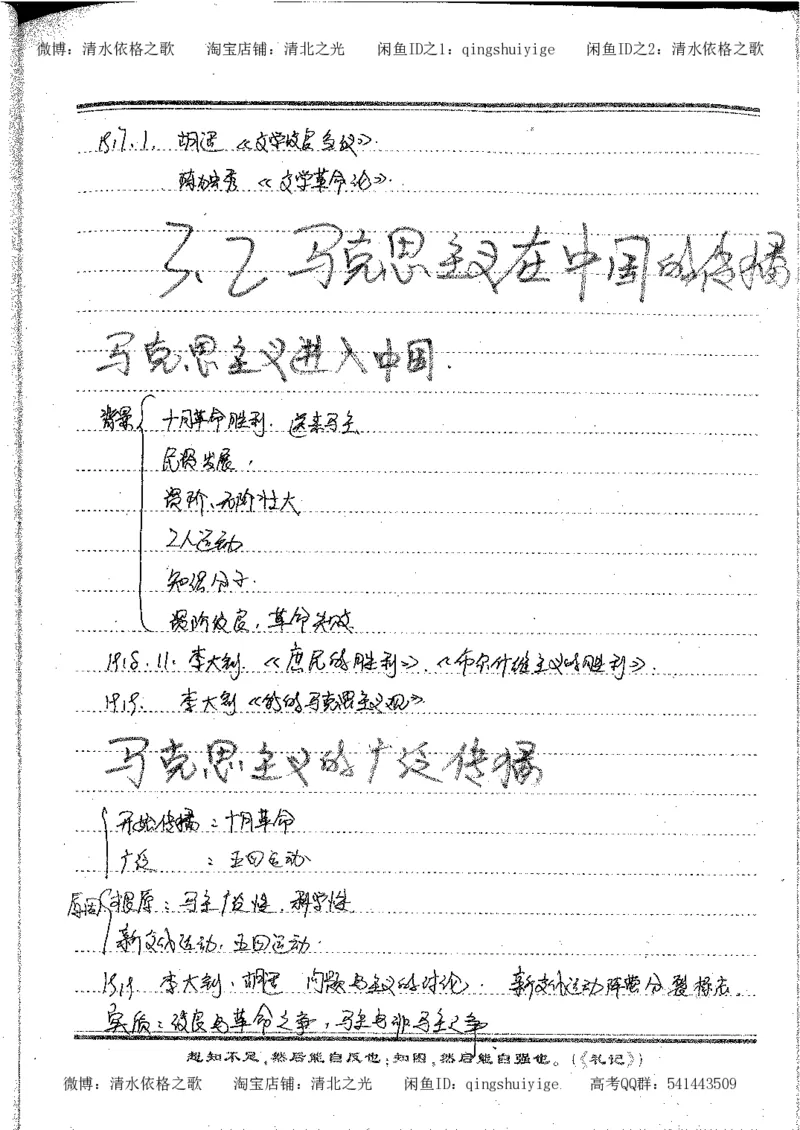 微博：清水依格之歌 淘宝店铺：清北之光 闲鱼ID之1：qingshuiyige 闲鱼ID之2：清水依格之歌
1917.1. 胡适《文学改良刍议》.
陈独秀《文学革命论》.
3.2 马克思主义在中国的传播
马克思主义进入中国.
背景 十月革命胜利. 送来马主
民资发展,
资阶、无阶壮大
工人运动
知识分子.
资阶改良, 革命失败
1918.11. 李大钊.《庶民的胜利》.《布尔什维主义的胜利》.
1919. 李大钊《我的马克思主义观》
马克思主义的广泛传播
开始传播：十月革命
广泛：五四运动
原因 根原：马主广泛性, 科学性
新文化运动, 五四运动.
1919 李大钊, 胡适 问题与主义的讨论. 新文化运动阵营分裂标志.
实质：改良与革命之争, 马主与非马主之争
是知不足，然后能自反也；知困，然后能自强也。（《礼记》）
微博：清水依格之歌 淘宝店铺：清北之光 闲鱼ID：qingshuiyige 高考QQ群：541443509